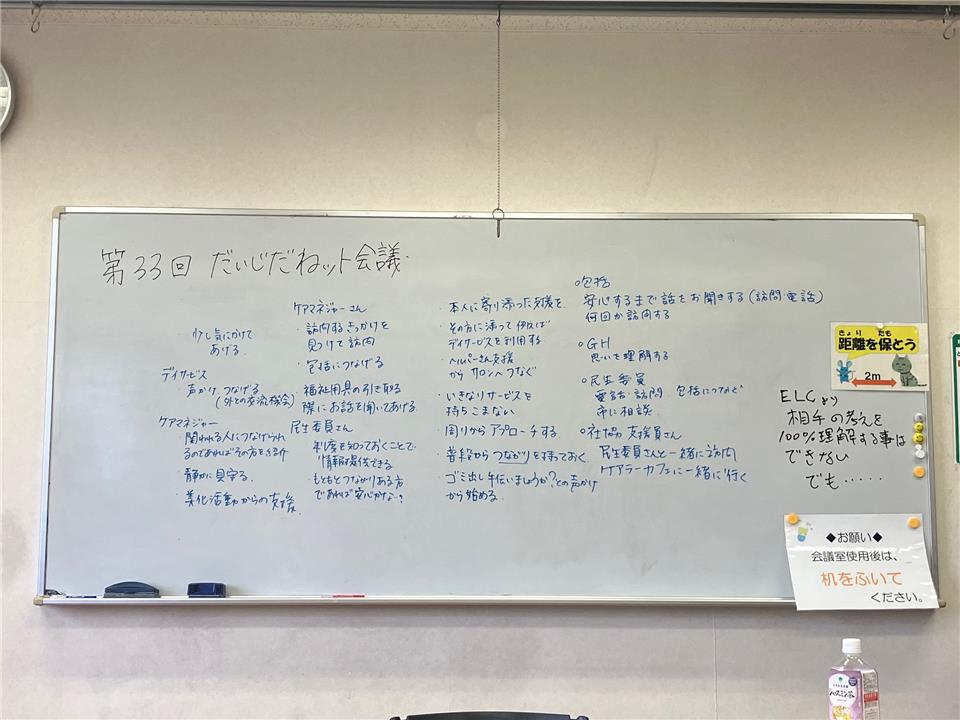 第33回 だいじだねット会議
少し気にかけて
あげる
デイサービス
・声かけ つなげる
(外との交流機会)
ケアマネジャー
・関われる人につなげられ
るのであればその方を紹介
・静かに見守る.
・美化活動からの支援
ケアマネジャーさん
・訪問するきっかけを
見つけて訪問
・包括につなげる
・福祉用具の引き取る
際にお話を聞いてあげる
民生委員さん
・制度を知っておくことで
情報提供できる
・もともとつながりある方
であれば安心かな?
・本人に寄り添った支援を
・その方に添って 例えば
デイサービスを利用する
・ヘルパーさん支援
から サロンへつなぐ
・いきなりサービスを
持ちこまない
・周りからアプローチする
・普段からつながりを持っておく
・ゴミ出し手伝いましょうか?との声かけ
から始める.
○包括
安心するまで話をお聞きする(訪問・電話)
何回か訪問する
○GH
思いを理解する
○民生委員
電話・訪問 包括につなぐ
市に相談
○社協 支援員さん
民生委員さんと一緒に訪問
ケアラーカフェに一緒に行く
ELCより
相手の考えを
100%理解する事は
できない
でも・・・・・
きょり たも
距離を保とう
2m
◆お願い◆
会議室使用後は、
机をふいて
ください。